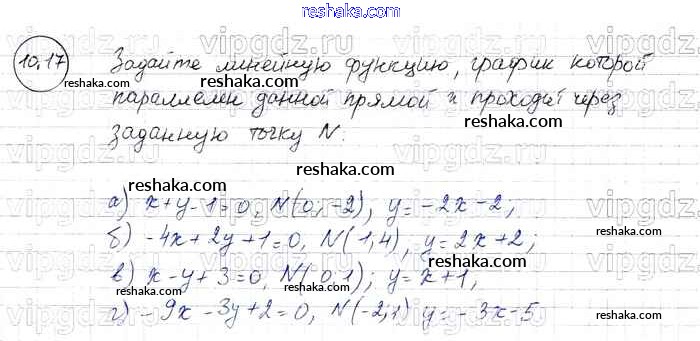 reshak.ru
10.17
Задайте линейную функцию, график которой
reshaka.com
reshaka.com
reshaka.com
параллелен данной прямой и проходит через
заданную точку N.
reshaka.com
reshaka.com
reshaka.com
а) x+y-1=0, N(0;-2), y=-2x-2;
б) -4x+2y+1=0, N(1,4), y=2x+2;
reshaka.com
reshaka.com
в) x-y+3=0, N(0,1); y=x+1,
reshaka.com
reshaka.com
г) -9x-3y+2=0, N(-2;1) y=-3x-5
reshaka.com
vipgdz.ru vipgdz.ru vipgdz.ru vipgdz.ru